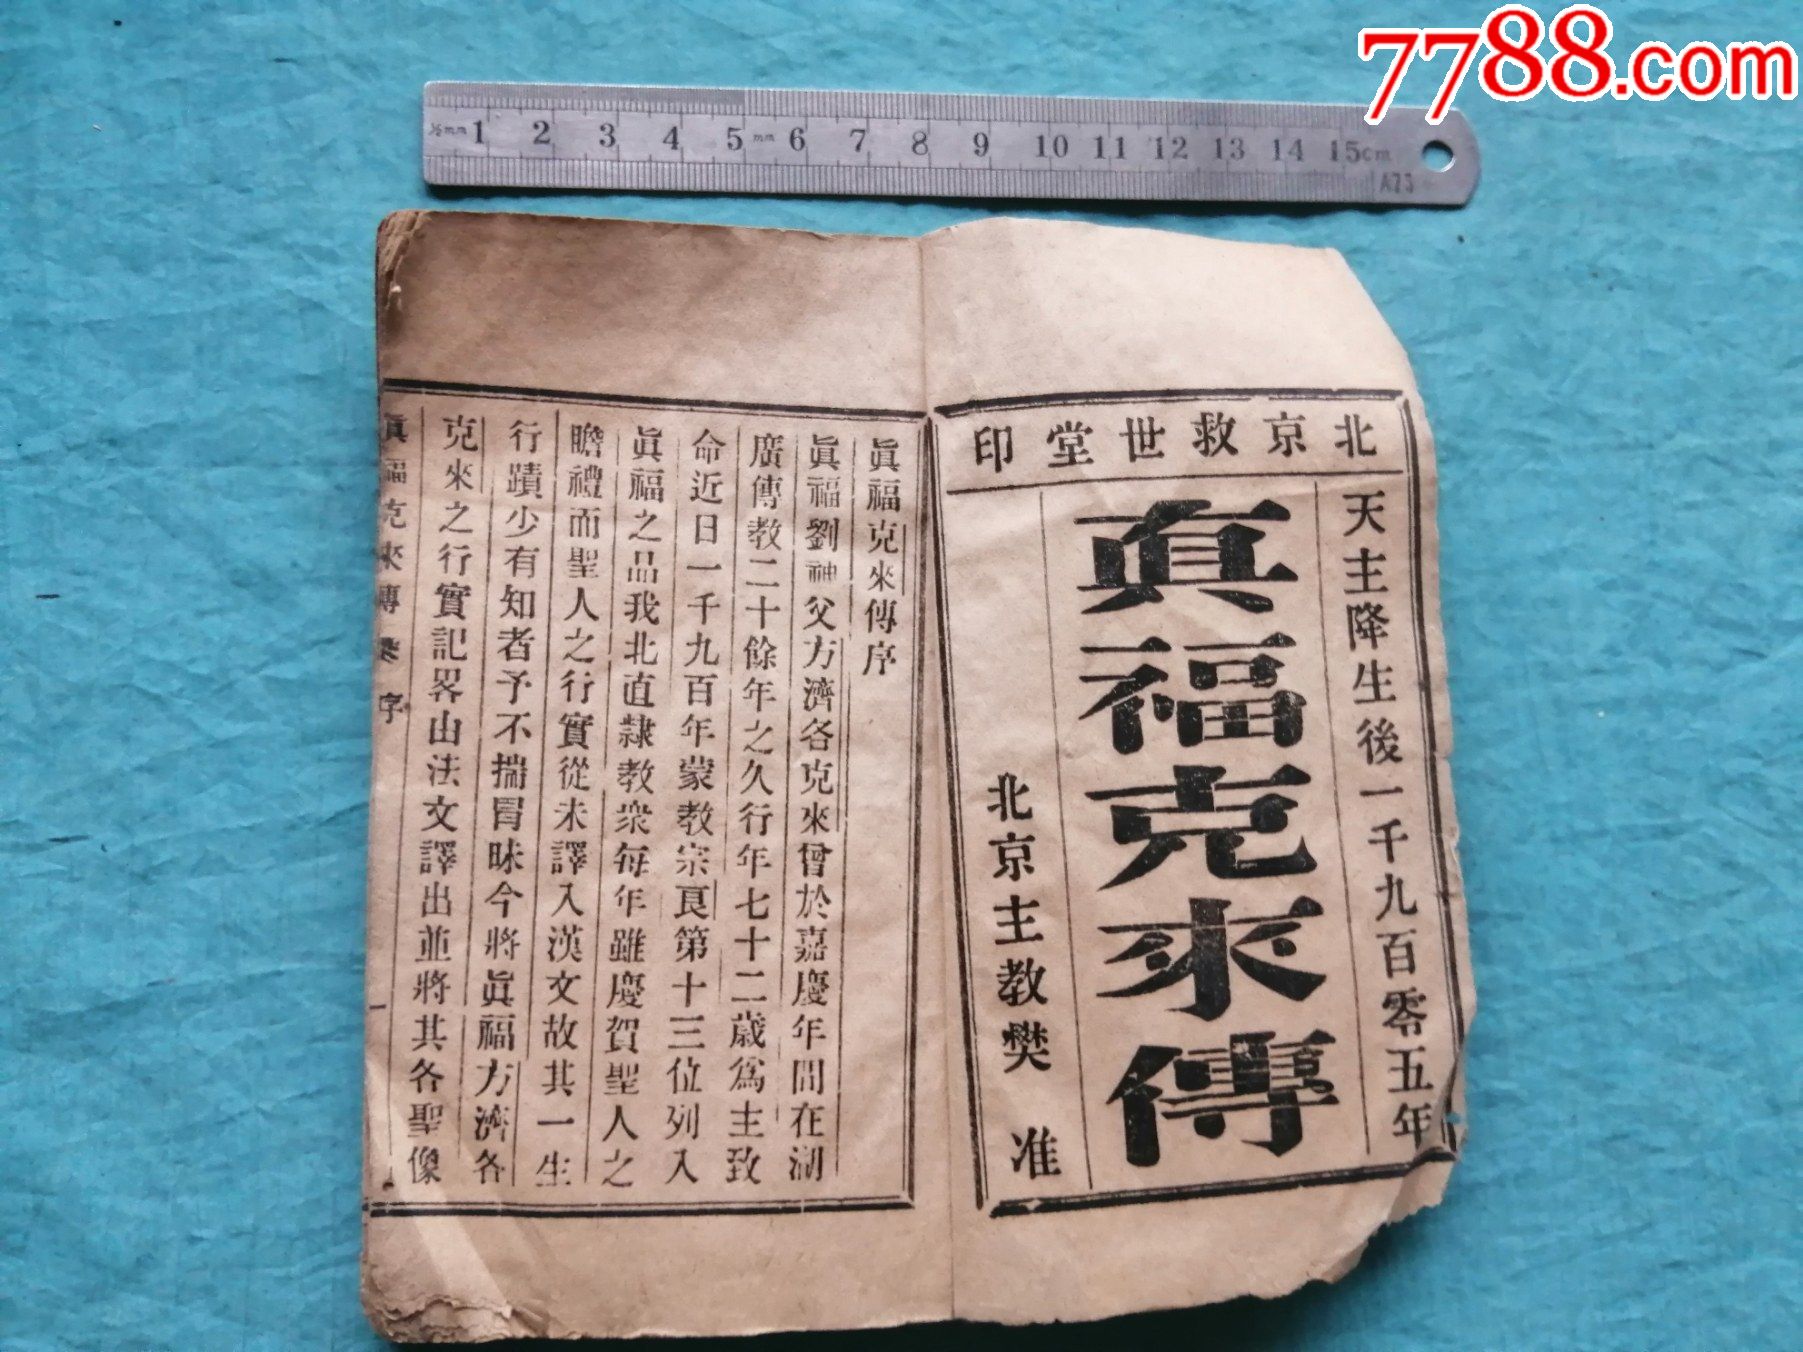 7788.com
½mm 1 2 3 4 5 mm 6 7 8 9 10 11 12 13 14 15cm
A73
北京救世堂印
天主降生後一千九百零五年
眞福克來傳
北京主教樊 准
眞福克來傳序
眞福劉神父方濟各克來曾於嘉慶年間在湖
廣傳教二十餘年之久行年七十二歲爲主致
命近日一千九百年蒙教宗良第十三位列入
眞福之品我北直隸教衆每年雖慶賀聖人之
瞻禮而聖人之行實從未譯入漢文故其一生
行蹟少有知者予不揣冒昧今將眞福方濟各
克來之行實記畧由法文譯出並將其各聖像
眞福克來傳 序 一